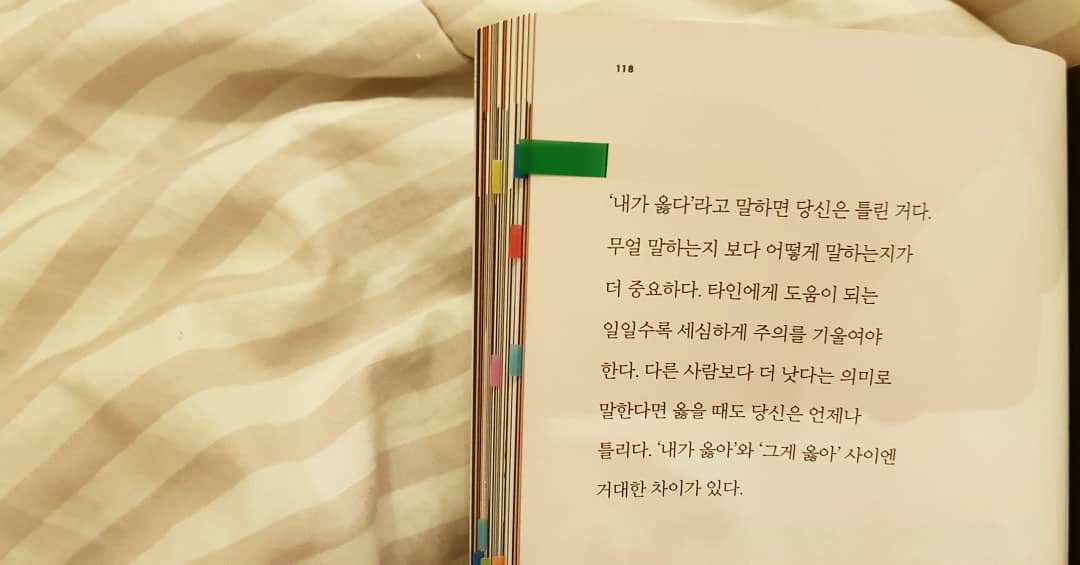 118
‘내가 옳다’라고 말하면 당신은 틀린 거다.
무얼 말하는지 보다 어떻게 말하는지가
더 중요하다. 타인에게 도움이 되는
일일수록 세심하게 주의를 기울여야
한다. 다른 사람보다 더 낫다는 의미로
말한다면 옳을 때도 당신은 언제나
틀리다. ‘내가 옳아’와 ‘그게 옳아’ 사이엔
거대한 차이가 있다.